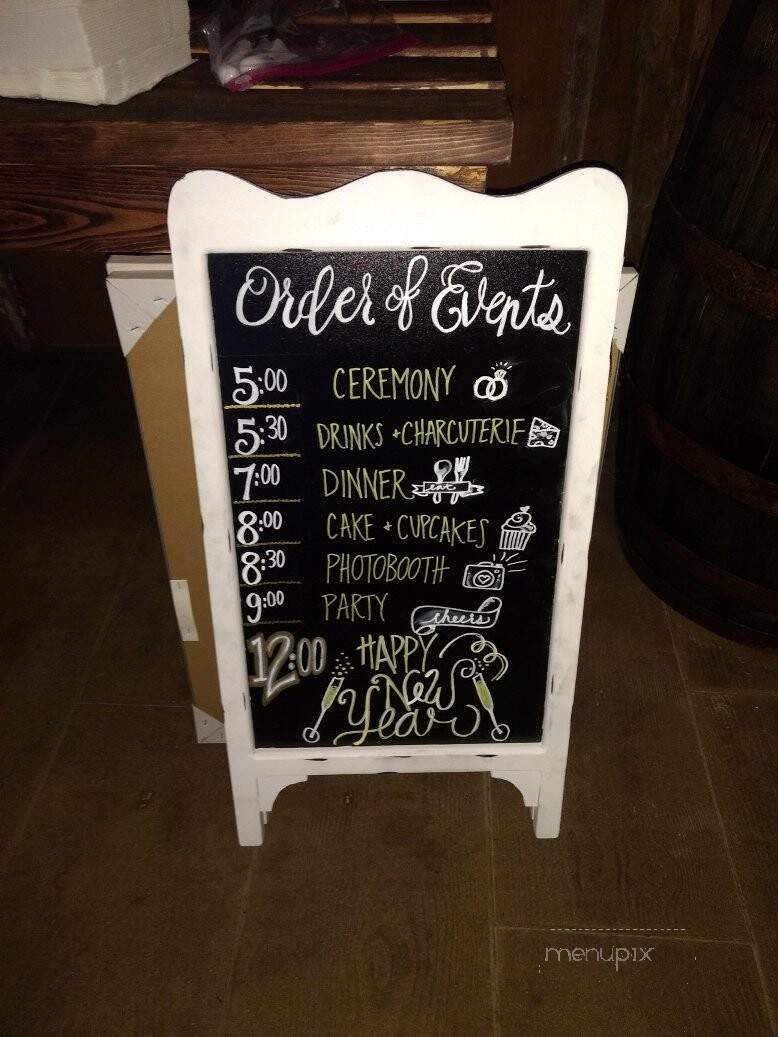 Order of Events
5:00 CEREMONY
5:30 DRINKS + CHARCUTERIE
7:00 DINNER eat
8:00 CAKE + CUPCAKES
8:30 PHOTOBOOTH
9:00 PARTY cheers
12:00 HAPPY
New
Year
menupix